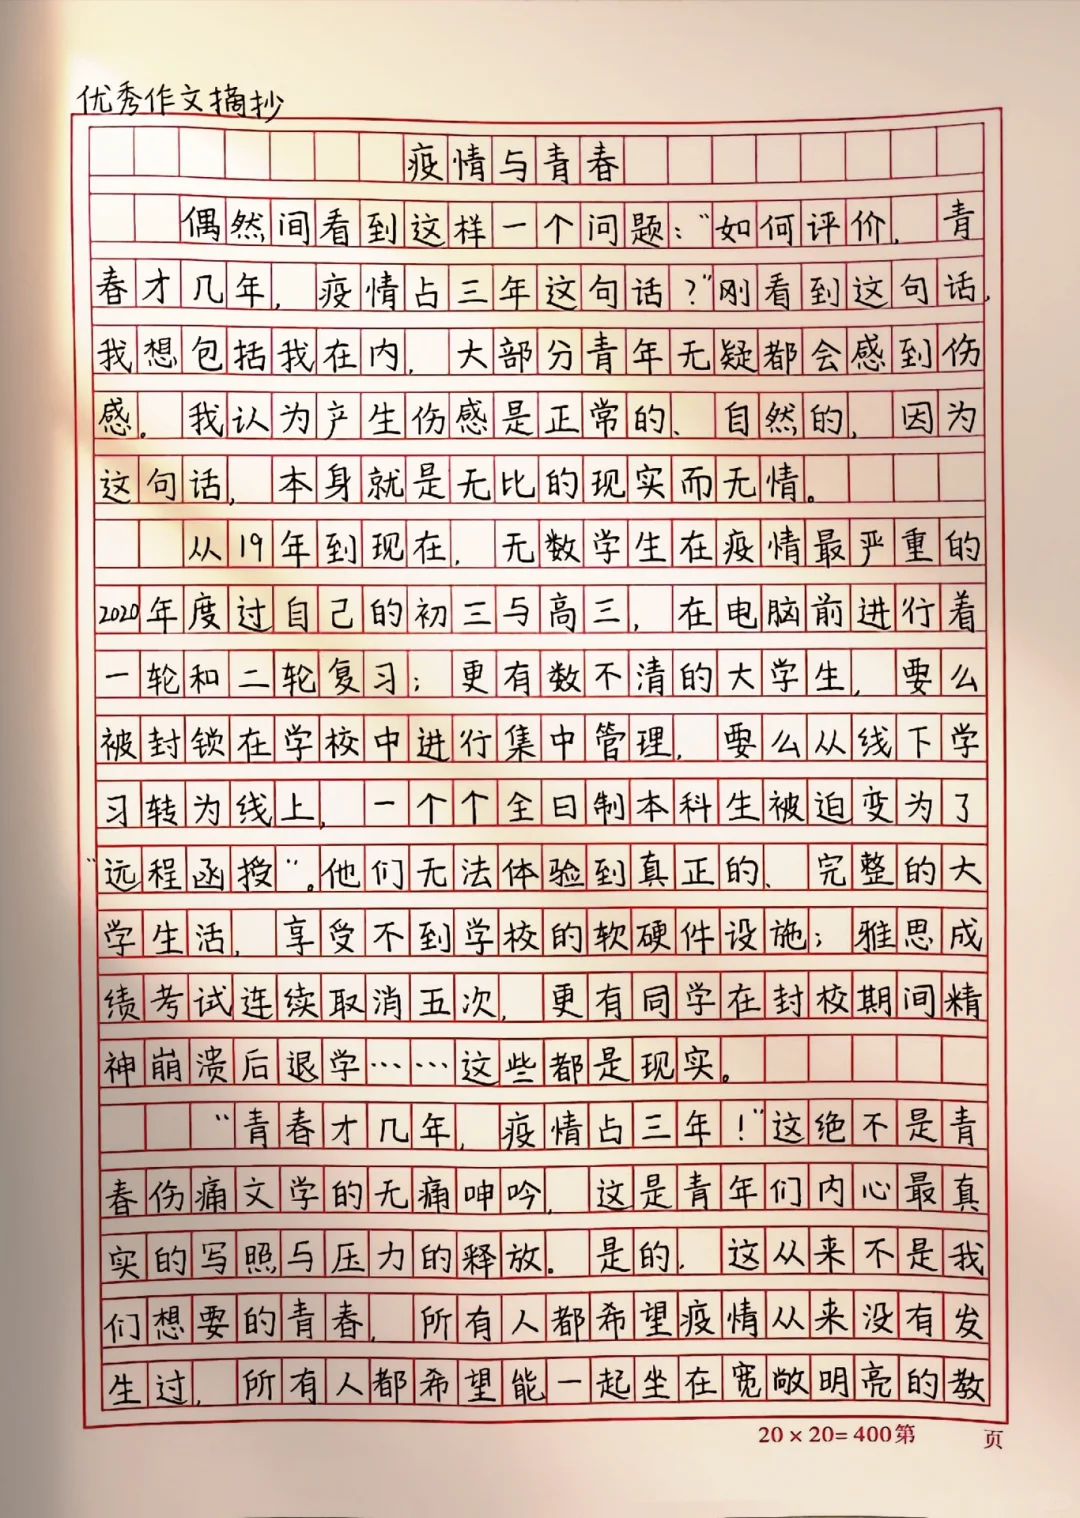 优秀作文摘抄
疫情与青春
偶然间看到这样一个问题："如何评价，青
春才几年，疫情占三年这句话？"刚看到这句话，
我想包括我在内，大部分青年无疑都会感到伤
感。我认为产生伤感是正常的、自然的，因为
这句话，本身就是无比的现实而无情。
从19年到现在，无数学生在疫情最严重的
2020年度过自己的初三与高三，在电脑前进行着
一轮和二轮复习；更有数不清的大学生，要么
被封锁在学校中进行集中管理，要么从线下学
习转为线上，一个个全日制本科生被迫变为了
"远程函授"。他们无法体验到真正的、完整的大
学生活，享受不到学校的软硬件设施；雅思成
绩考试连续取消五次，更有同学在封校期间精
神崩溃后退学……这些都是现实。
"青春才几年，疫情占三年！"这绝不是青
春伤痛文学的无痛呻吟，这是青年们内心最真
实的写照与压力的释放。是的，这从来不是我
们想要的青春，所有人都希望疫情从来没有发
生过，所有人都希望能一起坐在宽敞明亮的教
20×20=400第 页